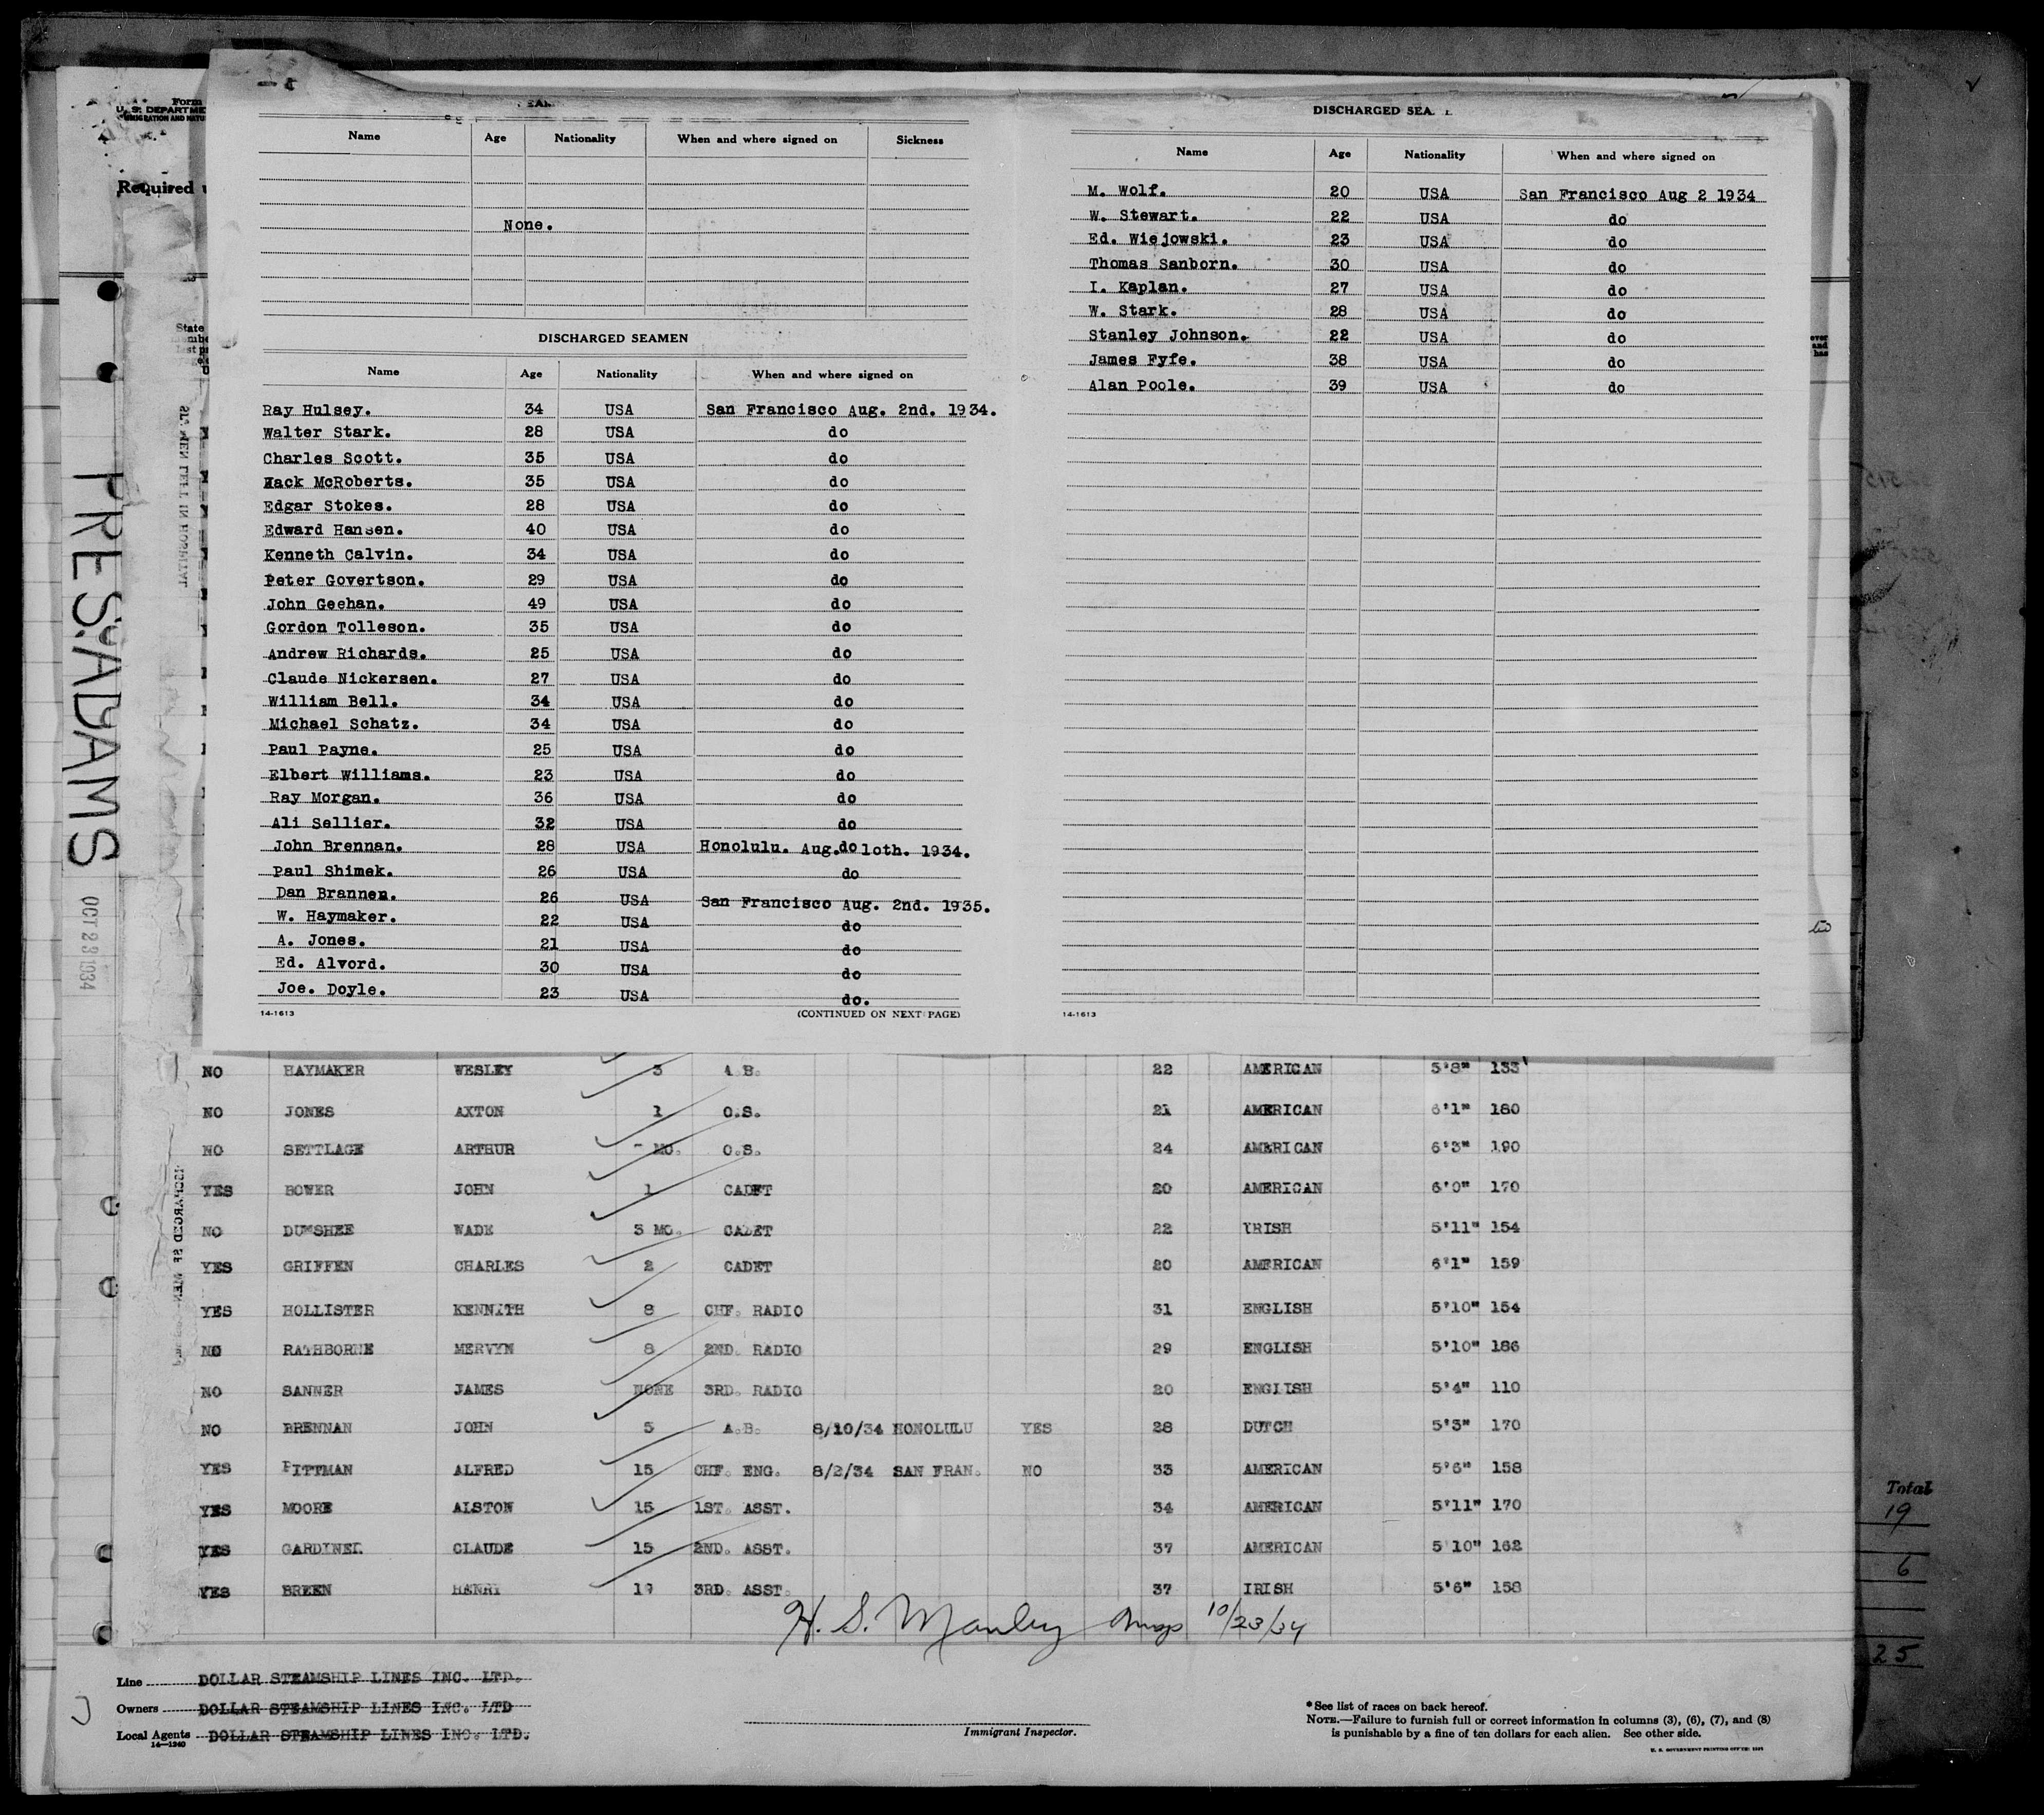 Form
U. S. DEPARTME
IMMIGRATION AND NATU
Required u
State
PRES. ADAMS
OCT 23 1934
SEAMEN LEFT IN HOSPITAL
DISCHARGED SEAMEN
Name Age Nationality When and where signed on Sickness
None.
DISCHARGED SEAMEN
Name Age Nationality When and where signed on
Ray Hulsey. 34 USA San Francisco Aug. 2nd. 1934.
Walter Stark. 28 USA do
Charles Scott. 35 USA do
Hack McRoberts. 35 USA do
Edgar Stokes. 28 USA do
Edward Hansen. 40 USA do
Kenneth Calvin. 34 USA do
Peter Govertson. 29 USA do
John Geehan. 49 USA do
Gordon Tolleson. 35 USA do
Andrew Richards. 25 USA do
Claude Nickersen. 27 USA do
William Bell. 34 USA do
Michael Schatz. 34 USA do
Paul Payne. 25 USA do
Elbert Williams. 23 USA do
Ray Morgan. 36 USA do
Ali Sellier. 32 USA do
John Brennan. 28 USA Honolulu. Aug. do 10th. 1934.
Paul Shimek. 26 USA do
Dan Brannen. 26 USA San Francisco Aug. 2nd. 1935.
W. Haymaker. 22 USA do
A. Jones. 21 USA do
Ed. Alvord. 30 USA do
Joe. Doyle. 23 USA do.
14-1613 (CONTINUED ON NEXT PAGE)
DISCHARGED SEA
Name Age Nationality When and where signed on
M. Wolf. 20 USA San Francisco Aug 2 1934
W. Stewart. 22 USA do
Ed. Wiejowski. 23 USA do
Thomas Sanborn. 30 USA do
I. Kaplan. 27 USA do
W. Stark. 28 USA do
Stanley Johnson. 22 USA do
James Fyfe. 38 USA do
Alan Poole. 39 USA do
14-1613
over
and
has
NO HAYMAKER WESLEY 3 A.B. 22 AMERICAN 5'8" 133
NO JONES AXTON 1 O.S. 21 AMERICAN 6'1" 180
NO SETTLAGE ARTHUR - MO. O.S. 24 AMERICAN 6'3" 190
YES BOWER JOHN 1 CADET 20 AMERICAN 6'0" 170
NO DUNSHEE WADE 3 MO. CADET 22 IRISH 5'11" 154
YES GRIFFEN CHARLES 2 CADET 20 AMERICAN 6'1" 159
YES HOLLISTER KENNITH 8 CHF. RADIO 31 ENGLISH 5'10" 154
NO RATHBORNE MERVYN 8 2ND. RADIO 29 ENGLISH 5'10" 186
NO SANNER JAMES NONE 3RD. RADIO 20 ENGLISH 5'4" 110
NO BRENNAN JOHN 5 A.B. 8/10/34 HONOLULU YES 28 DUTCH 5'3" 170
YES PITTMAN ALFRED 15 CHF. ENG. 8/2/34 SAN FRAN. NO 33 AMERICAN 5'6" 158
YES MOORE ALSTON 15 1ST. ASST. 34 AMERICAN 5'11" 170
YES GARDINEL CLAUDE 15 2ND. ASST. 37 AMERICAN 5'10" 162
YES BREEN HENRY 19 3RD. ASST. 37 IRISH 5'6" 158
H. S. Manley 10/23/34
Total
19
6
25
Line DOLLAR STEAMSHIP LINES INC. LTD.
Owners DOLLAR STEAMSHIP LINES INC. LTD
Local Agents DOLLAR STEAMSHIP LINES INC. LTD.
14-1240
Immigrant Inspector.
*See list of races on back hereof.
NOTE.—Failure to furnish full or correct information in columns (3), (6), (7), and (8)
is punishable by a fine of ten dollars for each alien. See other side.